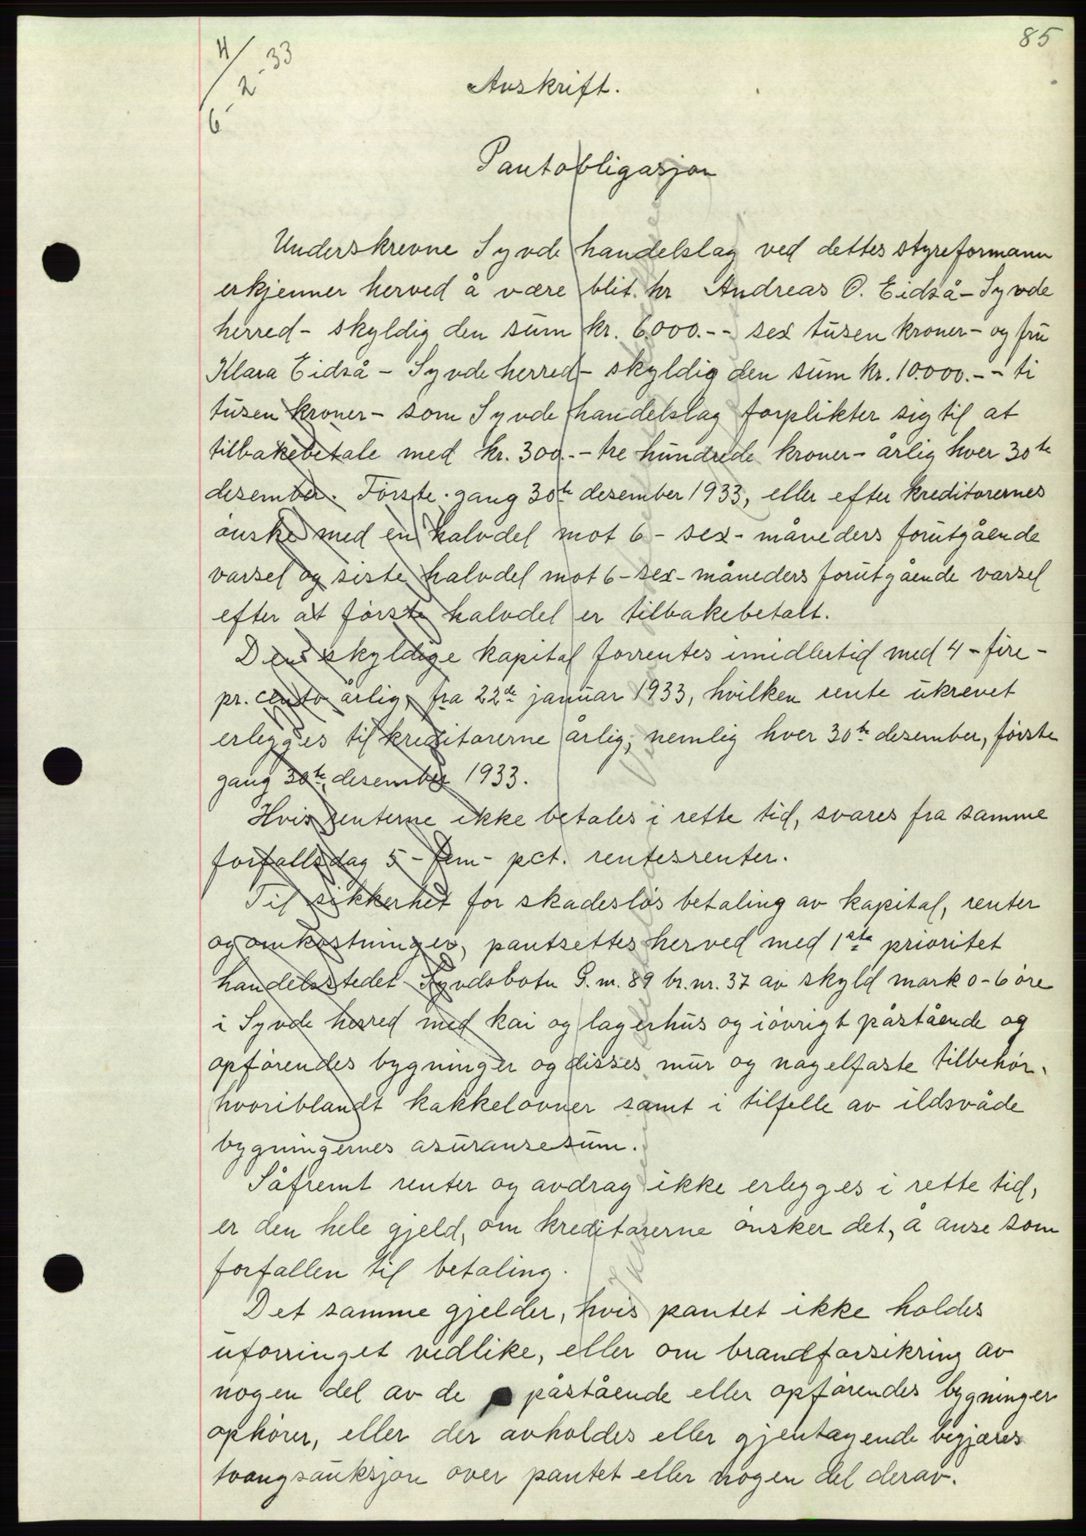 85
4/
6-2-33
Avskrift.
Pantobligasjon
Underskrevne Syvde handelslag ved dettes styreformann
erkjenner herved å være blit hr Andreas O. Eidså - Syvde
herred - skyldig den sum kr. 6.000.-- sex tusen kroner - og fru
Klara Eidså - Syvde herred - skyldig den sum kr. 10.000.-- ti
tusen kroner - som Syvde handelslag forplikter sig til at
tilbakebetale med kr. 300.-- tre hundrede kroner - årlig hver 30te
desember. Første gang 30te desember 1933, eller efter kreditorernes
ønske med en halvdel mot 6 - sex - måneders forutgående
varsel og siste halvdel mot 6 - sex - måneders forutgående varsel
efter at første halvdel er tilbakebetalt.
Den skyldige kapital forrentes imidlertid med 4 - fire -
pr. cento årlig, fra 22de januar 1933, hvilken rente ukrevet
erlegges til kreditorerne årlig, nemlig hver 30te desember, første
gang 30te desember 1933.
Hvis renterne ikke betales i rette tid, svares fra samme
forfallsdag 5 - fem - pct. rentesrenter.
Til sikkerhet for skadesløs betaling av kapital, renter
og omkostninger, pantsettes herved med 1ste prioritet
handelsstedet Syvdsbotn G.nr. 89 br.nr. 37 av skyld mark 0-6 øre
i Syvde herred med kai og lagerhus og iøvrigt påstående og
opførendes bygninger og disses mur og nagelfaste tilbehør,
hvoriblandt kakkelovner samt i tilfelle av ildsvåde
bygningernes asuransesum.
Såfremt renter og avdrag ikke erlegges i rette tid,
er den hele gjeld, om kreditorerne ønsker det, å anse som
forfallen til betaling.
Det samme gjelder, hvis pantet ikke holdes
uforringet vedlike, eller om brandforsikring av
nogen del av de påstående eller opførendes bygninger
ophører, eller der avholdes eller gjentagende begjæres
tvangsauksjon over pantet eller nogen del derav.